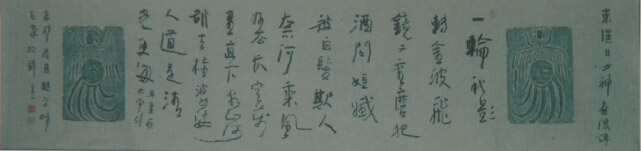 東漢日月神畫像磚
一輪秋影
轉金波飛
鏡又重磨把
酒問姮娥
被白髮欺人
奈何乘風
好去長空萬
里直下看山河
斫去桂婆娑
人道是清
光更多
辛棄疾
太常引